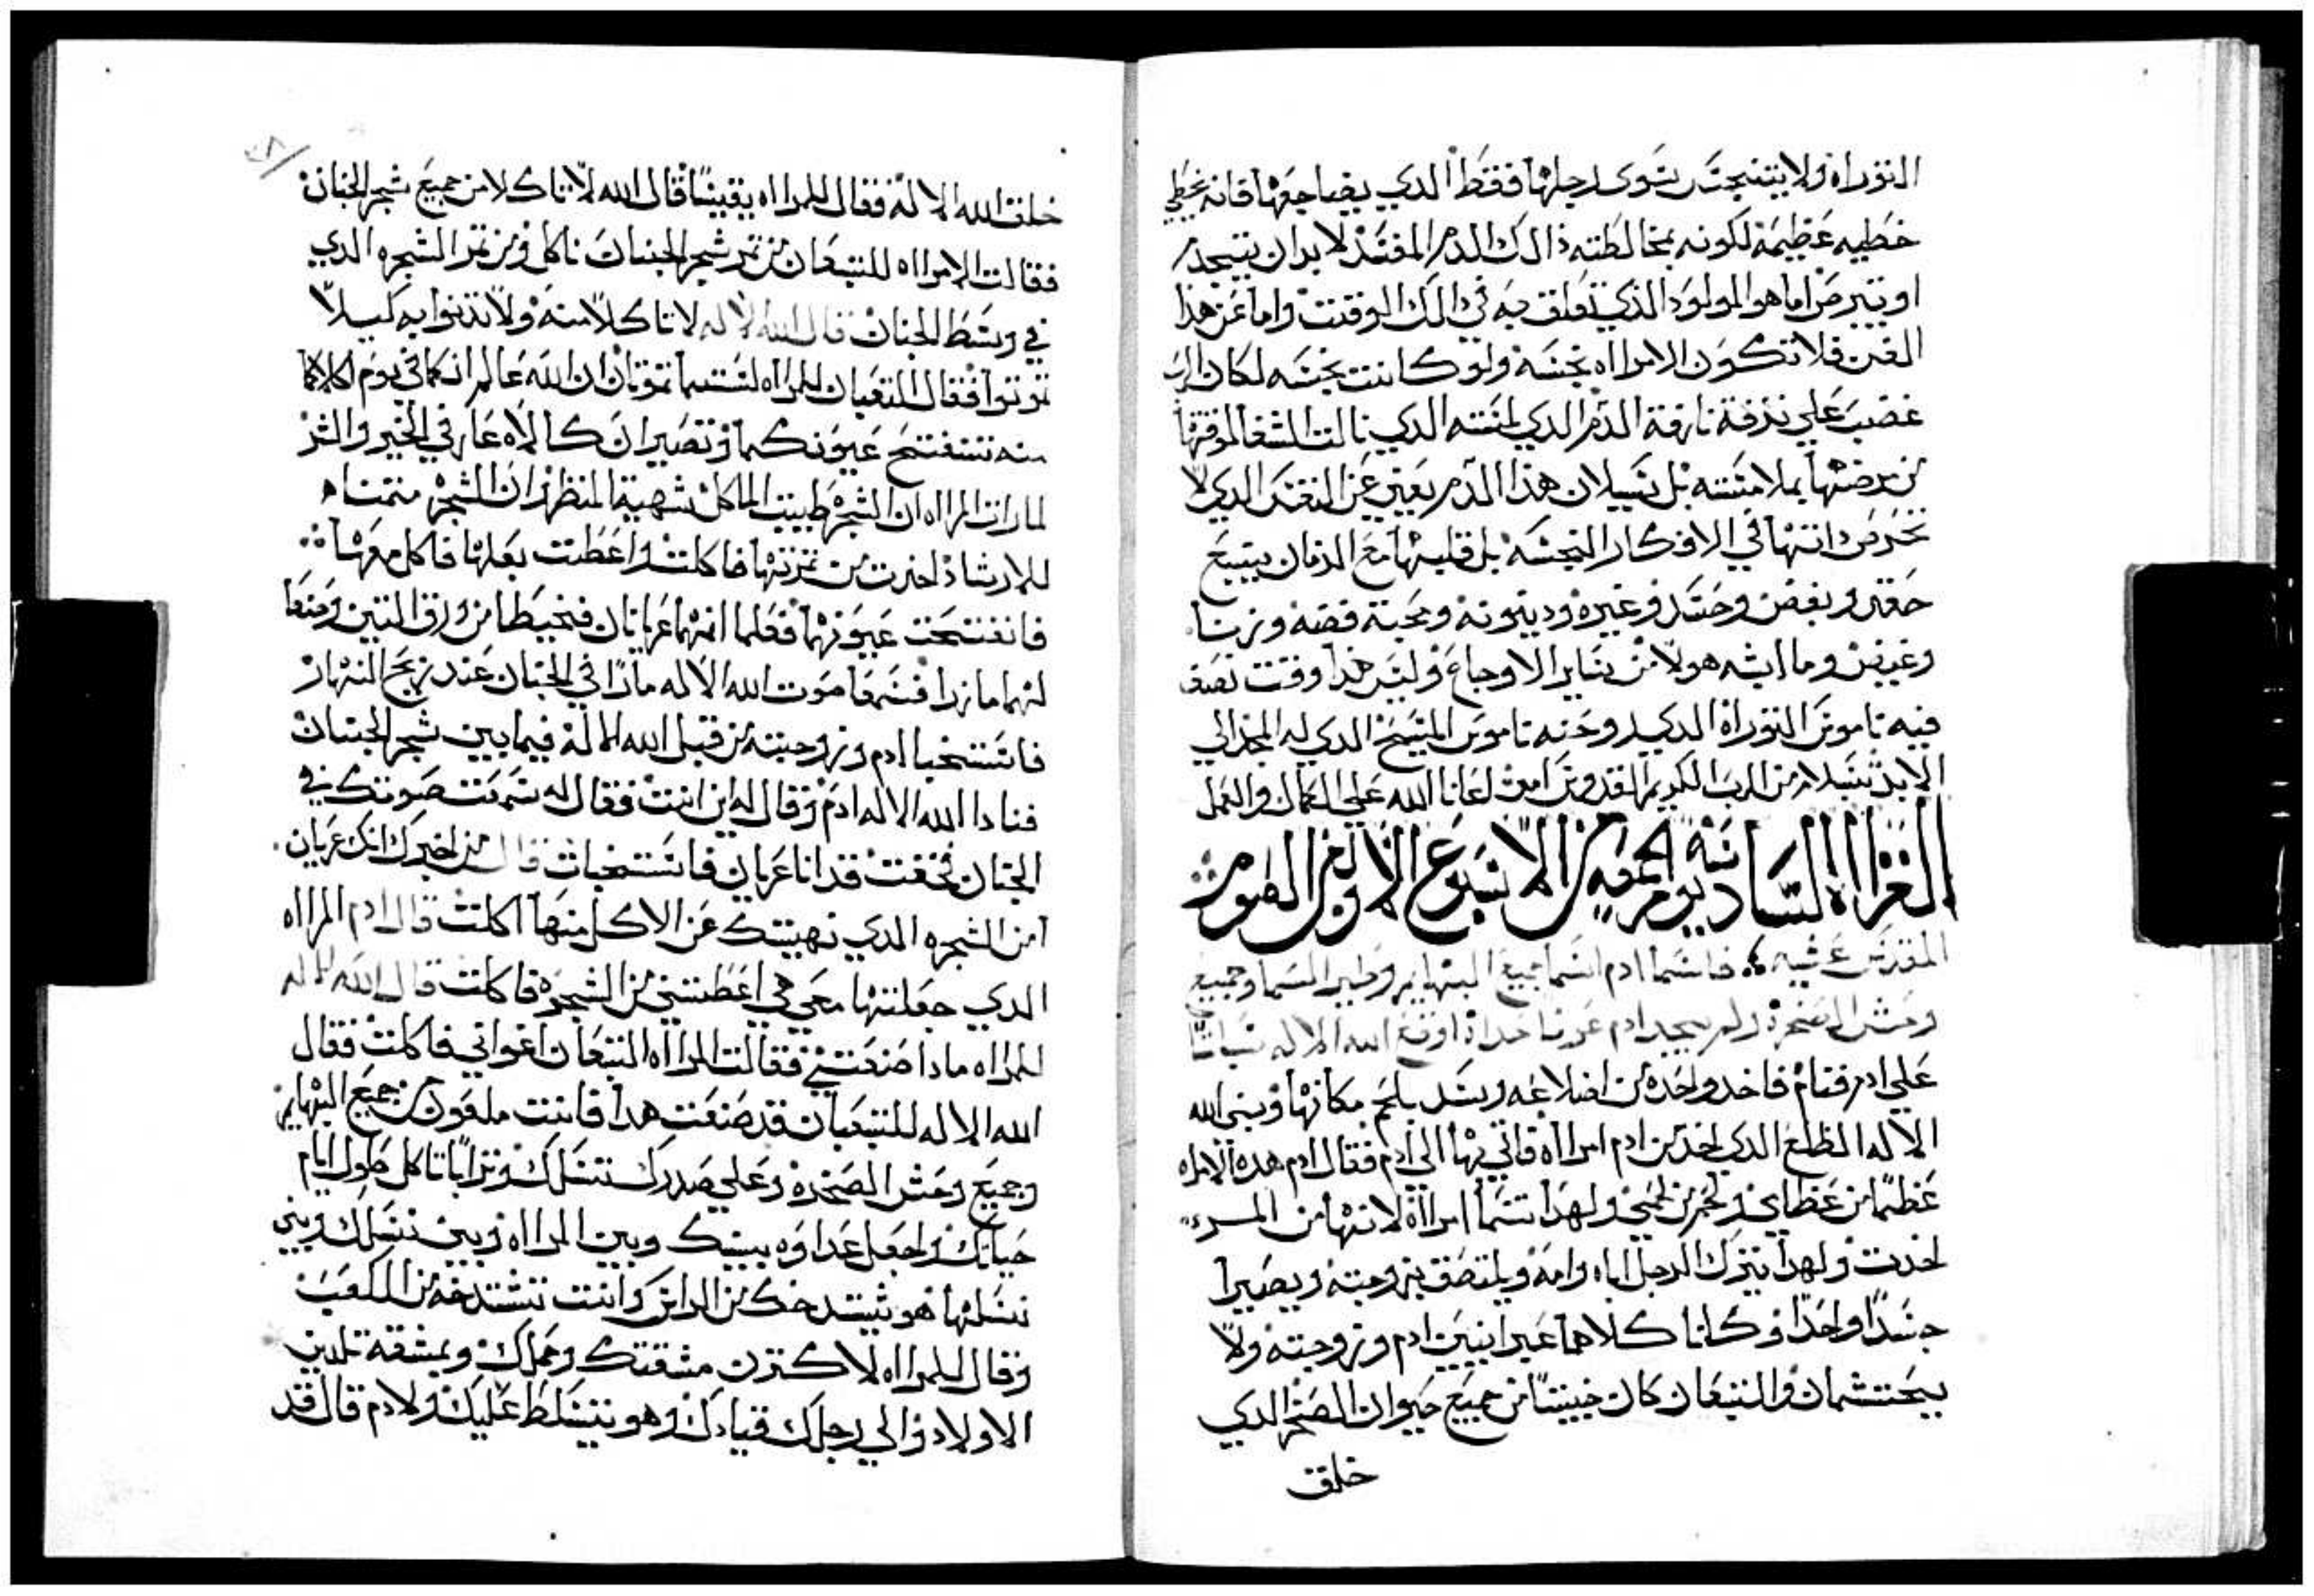 التوراه ولا يتنجس سوى رجلها فقط الدي يضاجعها فانه يخطي
خطيه عظيمة لكونه بمخالطته ذالك الدم المفسد لا بد ان يتجدم
او يتبرص اما هو المولود الذي تعلق به في ذالك الوقت واما عن هذا
الفن فلا تكون الامرااه نجسه ولو كانت نجسه لكان الرب
غضب علي نزفة نازفة الدم الدي لمسته الدي نالت الشفا لوقتها
من مرضها بملامسته بل سيلان هذا الدم يعني عن النفس الدي لا
تحرص داتها في الافكار النجسه بل قلبها مع الزمان ينبع
حقد وبغض وحسد وغيره ودينونه ومحبة فضه وزنا
وغيض وما اشبه هولا من ساير الاوجاع وليس هذا وقت نصف
فيه ناموس التوراة الدي روحنه ناموس المسيح الدي له المجد الي
الابد نسلا من الرب الكريم القدوس امين اعانا الله علي الكمال والعمل
القراءة السادسه يوم الجمعه من الاسبوع الاول من الصوم
المقدس عشيه فاسما ادم اسما جميع البهايم وطير السما وجميع
وحش الصحرة ولم يجد ادم عونا حداه اوقع الله الاله سباتا
علي ادم فنام فاخد واحده من اضلاعه وسد بلحم مكانها وبنى الله
الاله الظلع الدي اخد من ادم امرااه فاتي بها الي ادم فقال ادم هده الامراه
عظما من عظامي ولحم من لحمي ولهدا تسما امرااة لانها من المرء
اخدت ولهدا يترك الرجل اباه وامه ويلتصق بزوجته ويصيرا
جسدا واحدا وكانا كلاهما عريانين ادم وزوجته ولا
يحتشمان والتعبان كان خبيثا من جميع حيوان الصحرا الدي
خلق
خلق الله الاله فقال للمرااه يقينا قال الله لا تاكلا من جميع شجر الجنان
فقالت الامرااه للتعبان من تمر شجر الجنان ناكل ومن تمر الشجره الدي
في وسط الجنان قال الله الاله لا تاكلا منه ولا تدنوا به كيلا
تموتوا فقال التعبان للمرااه لستما تموتان ان الله عالم انكما في يوم اكلاكما
منه تنفتح عيونكما وتصيران كالاه عارفي الخير والشر
لما رات المرااه ان الشجره طيبت الماكل شهية المنظر وان الشجره منتمناه
للارشاد اخدت من تمرتها فاكلت واعطت بعلها فاكل معها
فانفتحت عيونهما فعلما انهما عريانان فخيطا من ورق التين وصنعا
لهما مازرا فسمعا صوت الله الاله مارا في الجنان عند نزيح النهار
فاستخبا ادم وزوجته من قبل الله الاله فيما بين شجر الجنان
فنادا الله الاله ادم وقال له اين انت فقال له سمعت صوتك في
الجنان فخفت قد انا عريان فاستخبات قال من اخبرك انك عريان
امن الشجره الدي نهيتك عن الاكل منها اكلت قال ادم المرااه
الدي جعلتها معي هي اعطتني من الشجرة فاكلت قال الله الاله
للمرااه مادا صنعتي فقالت المرااه التعبان اغواني فاكلت فقال
الله الاله للتعبان قد صنعت هدا فانت ملعون من جميع البهايم
وجميع وحش الصحره وعلي صدرك تسلك وترابا تاكل طول ايام
حياتك واجعل عداوه بينك وبين المرااه وبين نسلك وبين
نسلها هو يشدخك من الراس وانت تشدخه من الكعب
وقال للمرااه لاكترن مشقتك وحملك وبمشقه تلدين
الاولاد والي رجلك قيادك وهو يتسلط عليك ولادم قال قد